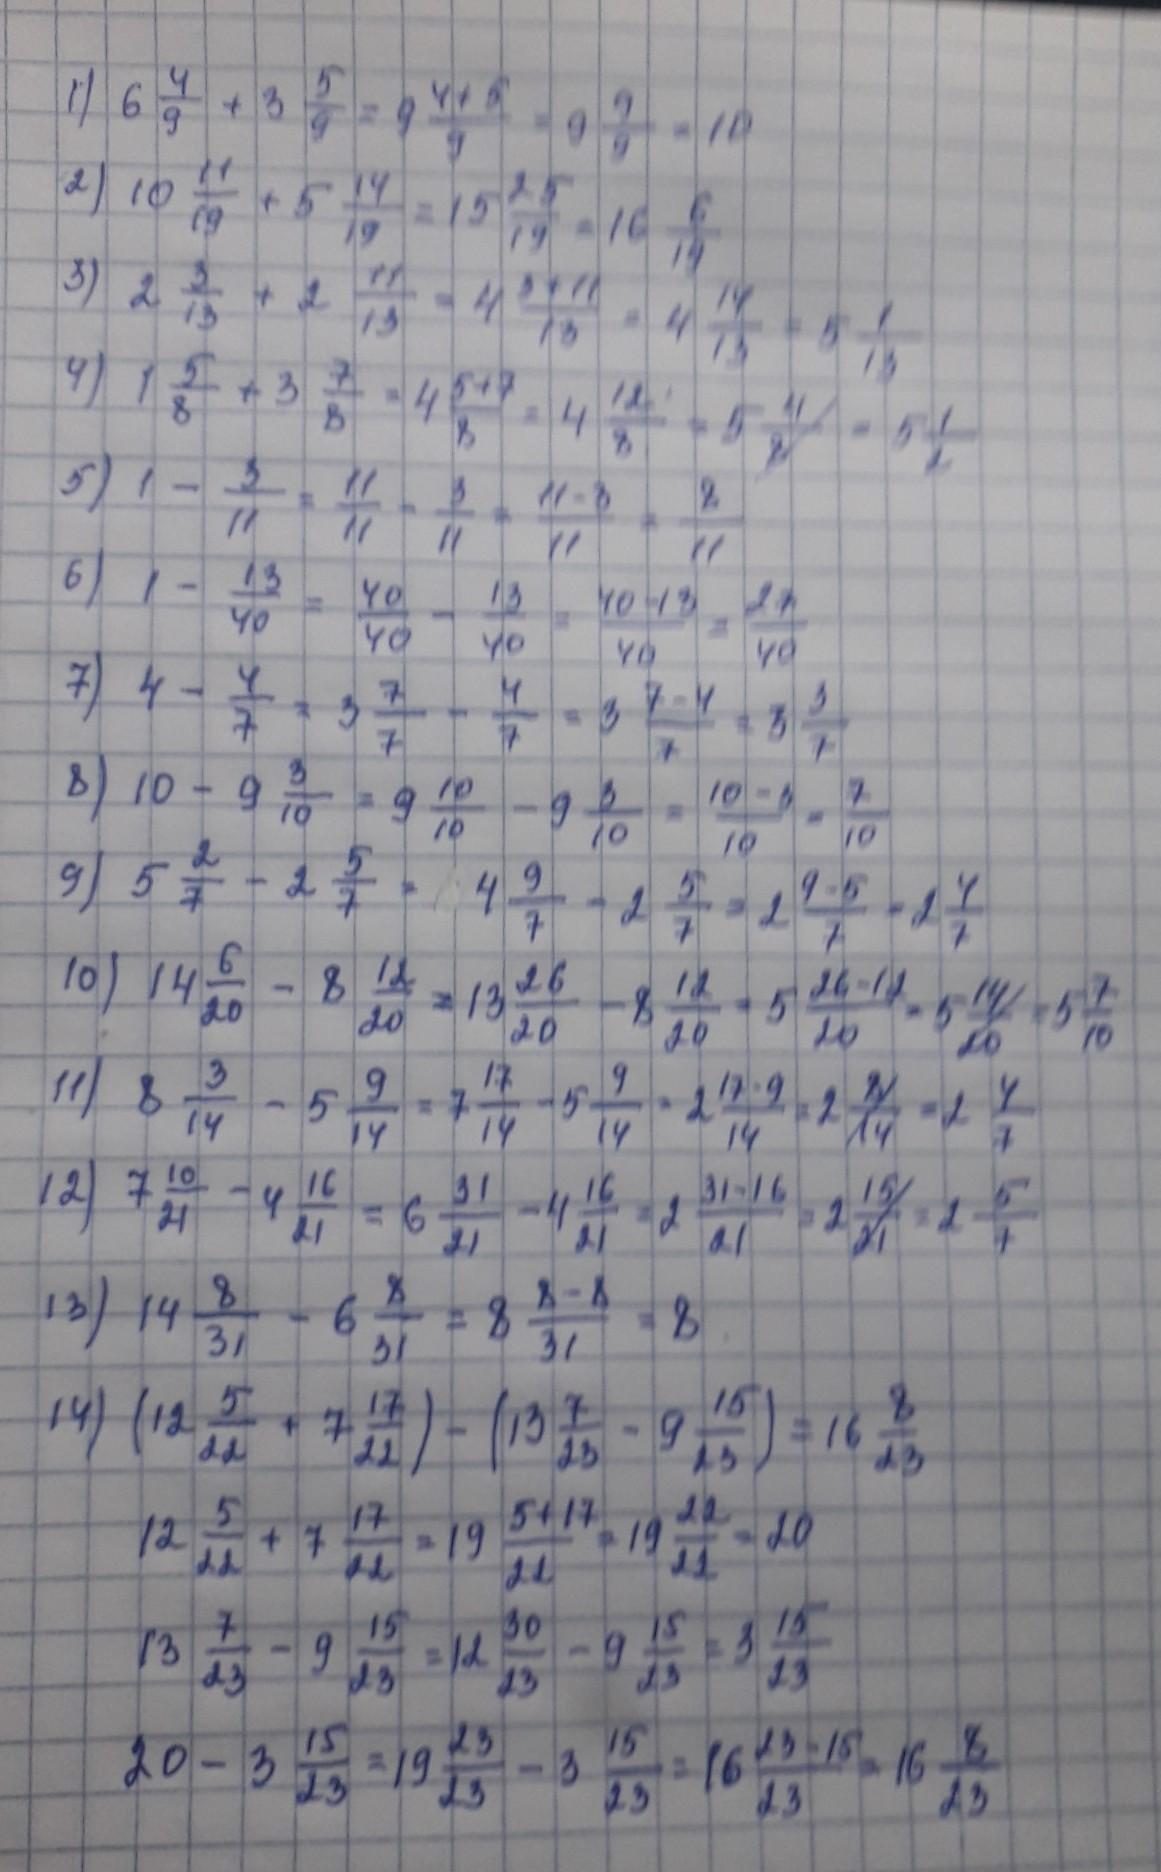 1) 6 4/9 + 3 5/9 = 9 4+5/9 = 9 9/9 = 10
2) 10 11/19 + 5 14/19 = 15 25/19 = 16 6/19
3) 2 3/13 + 2 11/13 = 4 3+11/13 = 4 14/13 = 5 1/13
4) 1 5/8 + 3 7/8 = 4 5+7/8 = 4 12/8 = 5 4/8 = 5 1/2
5) 1 - 3/11 = 11/11 - 3/11 = 11-3/11 = 8/11
6) 1 - 13/40 = 40/40 - 13/40 = 40-13/40 = 27/40
7) 4 - 4/7 = 3 7/7 - 4/7 = 3 7-4/7 = 3 3/7
8) 10 - 9 3/10 = 9 10/10 - 9 3/10 = 10-3/10 = 7/10
9) 5 2/7 - 2 5/7 = 4 9/7 - 2 5/7 = 2 9-5/7 = 2 4/7
10) 14 6/20 - 8 12/20 = 13 26/20 - 8 12/20 = 5 26-12/20 = 5 14/20 = 5 7/10
11) 8 3/14 - 5 9/14 = 7 17/14 - 5 9/14 = 2 17-9/14 = 2 8/14 = 2 4/7
12) 7 10/21 - 4 16/21 = 6 31/21 - 4 16/21 = 2 31-16/21 = 2 15/21 = 2 5/7
13) 14 8/31 - 6 8/31 = 8 8-8/31 = 8
14) (12 5/22 + 7 17/22) - (13 7/23 - 9 15/23) = 16 8/23
12 5/22 + 7 17/22 = 19 5+17/22 = 19 22/22 = 20
13 7/23 - 9 15/23 = 12 30/23 - 9 15/23 = 3 15/23
20 - 3 15/23 = 19 23/23 - 3 15/23 = 16 23-15/23 = 16 8/23